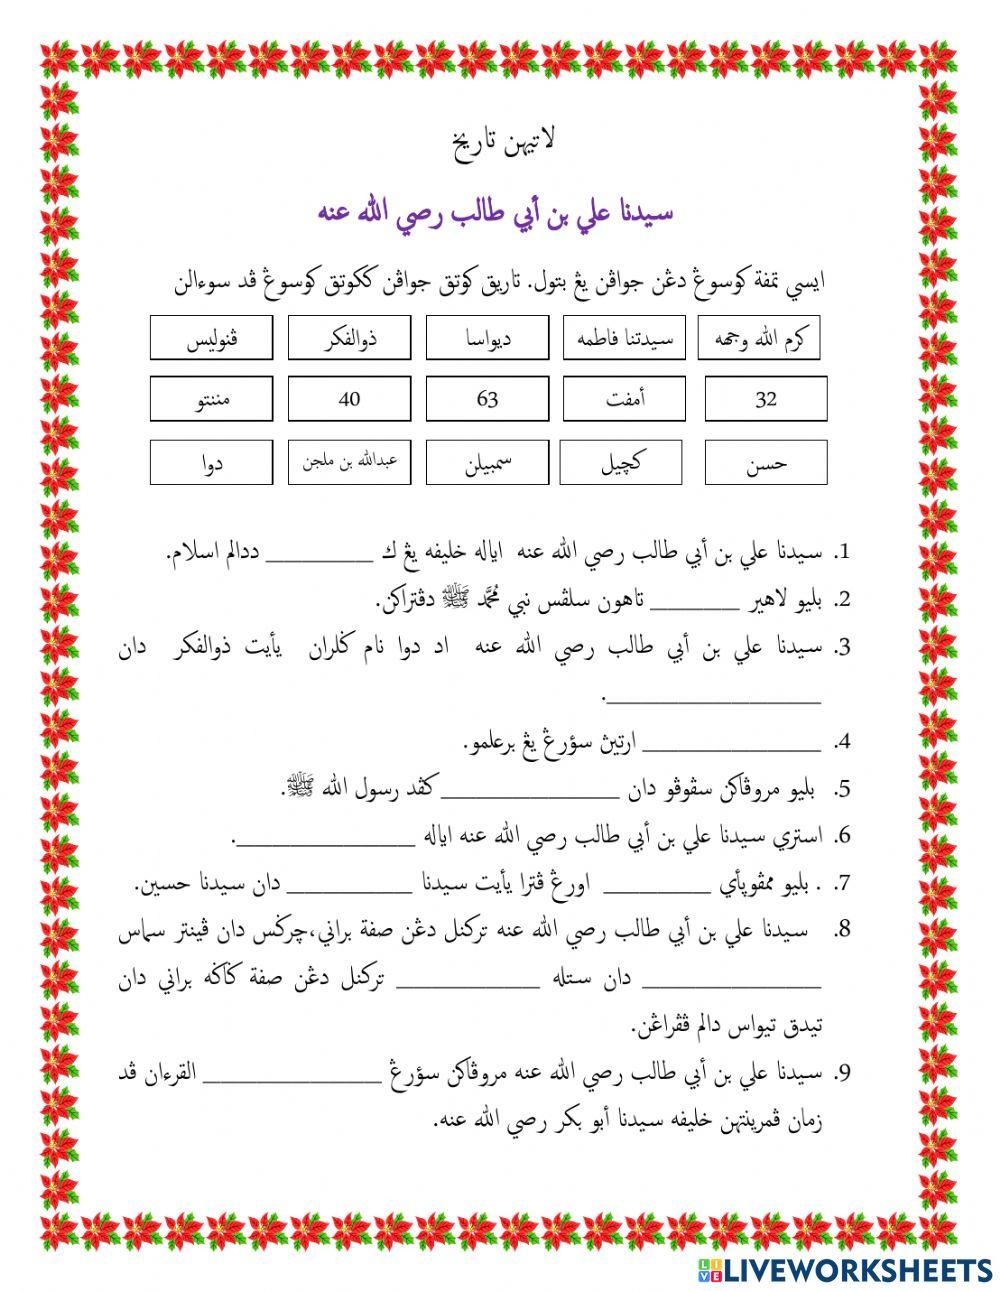 لاتيهن تاريخ
سيدنا علي بن أبي طالب رضي الله عنه
ايسي تمفة كوسوڠ دڠن جواڤن يڠ بتول. تاريق كوتق جواڤن ككوتق كوسوڠ ڤد سوءالن
كرم الله وجهه سيدتنا فاطمه ديواسا ذوالفكر ڤنوليس
32 أمفت 63 40 مننتو
حسن كچيل سمبيلن عبدالله بن ملجن دوا
1. سيدنا علي بن أبي طالب رضي الله عنه اياله خليفه يڠ ك __________ ددالم اسلام.
2. بليو لاهير ________ تاهون سلڤس نبي مُحَمَّد ﷺ دڤتراكن.
3. سيدنا علي بن أبي طالب رضي الله عنه اد دوا نام ݢلران يأيت ذوالفكر دان
____________________.
4. ________________ ارتيڽ سؤرڠ يڠ برعلمو.
5. بليو مروڤاكن سڤوڤو دان ________________ كڤد رسول الله ﷺ.
6. استري سيدنا علي بن أبي طالب رضي الله عنه اياله ________________.
7. . بليو ممڤوڽأي __________ اورڠ ڤترا يأيت سيدنا ___________ دان سيدنا حسين.
8. سيدنا علي بن أبي طالب رضي الله عنه تركنل دڠن صفة براني،چركس دان ڤينتر سماس
________________ دان ستله _____________ تركنل دڠن صفة ݢاݢه براني دان
تيدق تيواس دالم ڤڤراڠن.
9. سيدنا علي بن أبي طالب رضي الله عنه مروڤاكن سؤرڠ ________________ القرءان ڤد
زمان ڤمرينتهن خليفه سيدنا أبو بكر رضي الله عنه.
LIVE LIVEWORKSHEETS